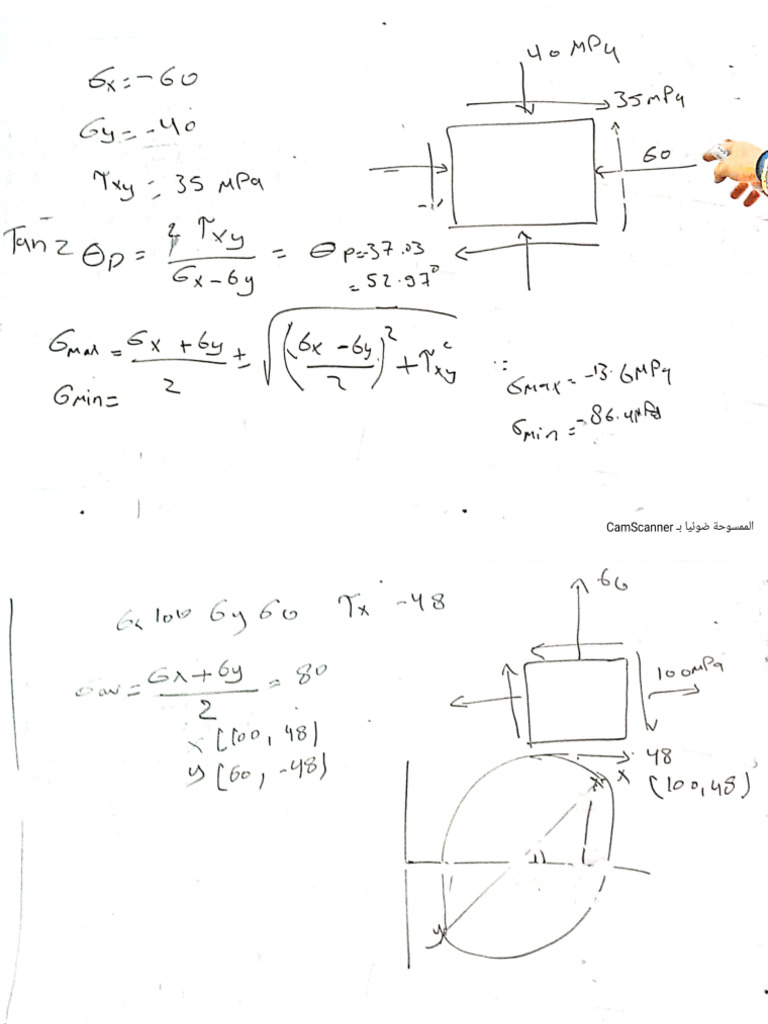 40 MPa
σx = -60
35 MPa
σy = -40
60
τxy = 35 MPa
Tan 2 θp = 2 τxy / σx - σy = θp = 37.03
= 52.97°
σmax = σx + σy / 2 ± √((σx - σy / 2)² + τxy²)
σmin =
∵ σmax = -13.6 MPa
σmin = -86.4 MPa
الممسوحة ضوئيا بـ CamScanner
60
σx 100 σy 60 τx -48
100 MPa
σav = σx + σy / 2 = 80
x (100, 48)
48
y (60, -48)
x
(100, 48)
y